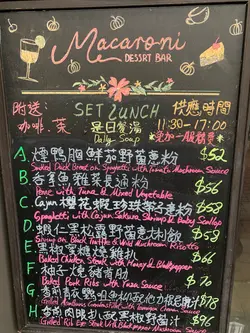 Macaroni
DESSRT BAR
SET LUNCH
附送：
咖啡 茶
是日餐湯
Daily Soup
供應時間
11:30-17:00
另加一服務費
A. 煙鴨胸鮮茄野菌意粉 $52
Smoked Duck Breast on Spaghetti with Tomato Mushroom Sauce
B. 通粉 $56
Penne with Tuna & Mixed Vegetable
C. Cajun 櫻花蝦珍珠帶子意粉 $68
Spaghetti with Cajun Sakura Shrimp & Baby Scallop
D. 蝦仁黑松露野菌意大利飯 $58
Shrimp on Black Truffle & Wild Mushroom Risotto
E. 黑椒蜜糖燒雞扒 $66
Baked Chicken Steak with Honey & Blackpepper
F. 柚子燒豬肋 $70
Baked Pork Ribs with Yuzu Sauce
G. $78
H. 香草肉眼扒配黑椒汁 $96
Grilled Rib Eye Steak with Black Pepper Sauce